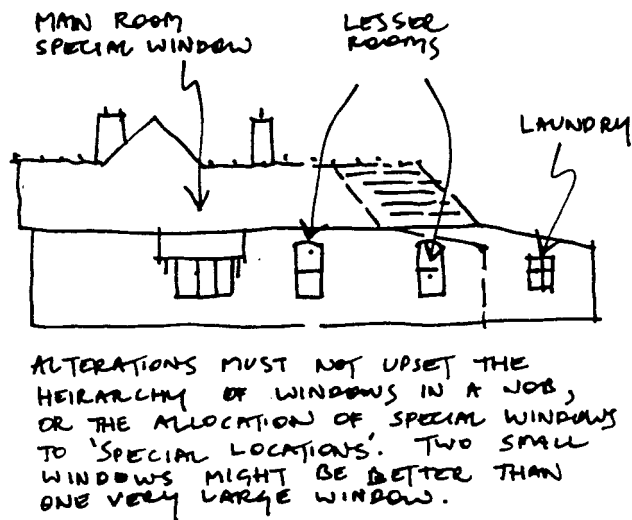 MAIN ROOM
SPECIAL WINDOW
LESSER
ROOMS
LAUNDRY
ALTERATIONS MUST NOT UPSET THE
HEIRARCHY OF WINDOWS IN A NOB,
OR THE ALLOCATION OF SPECIAL WINDOWS
TO 'SPECIAL LOCATIONS'. TWO SMALL
WINDOWS MIGHT BE BETTER THAN
ONE VERY LARGE WINDOW.